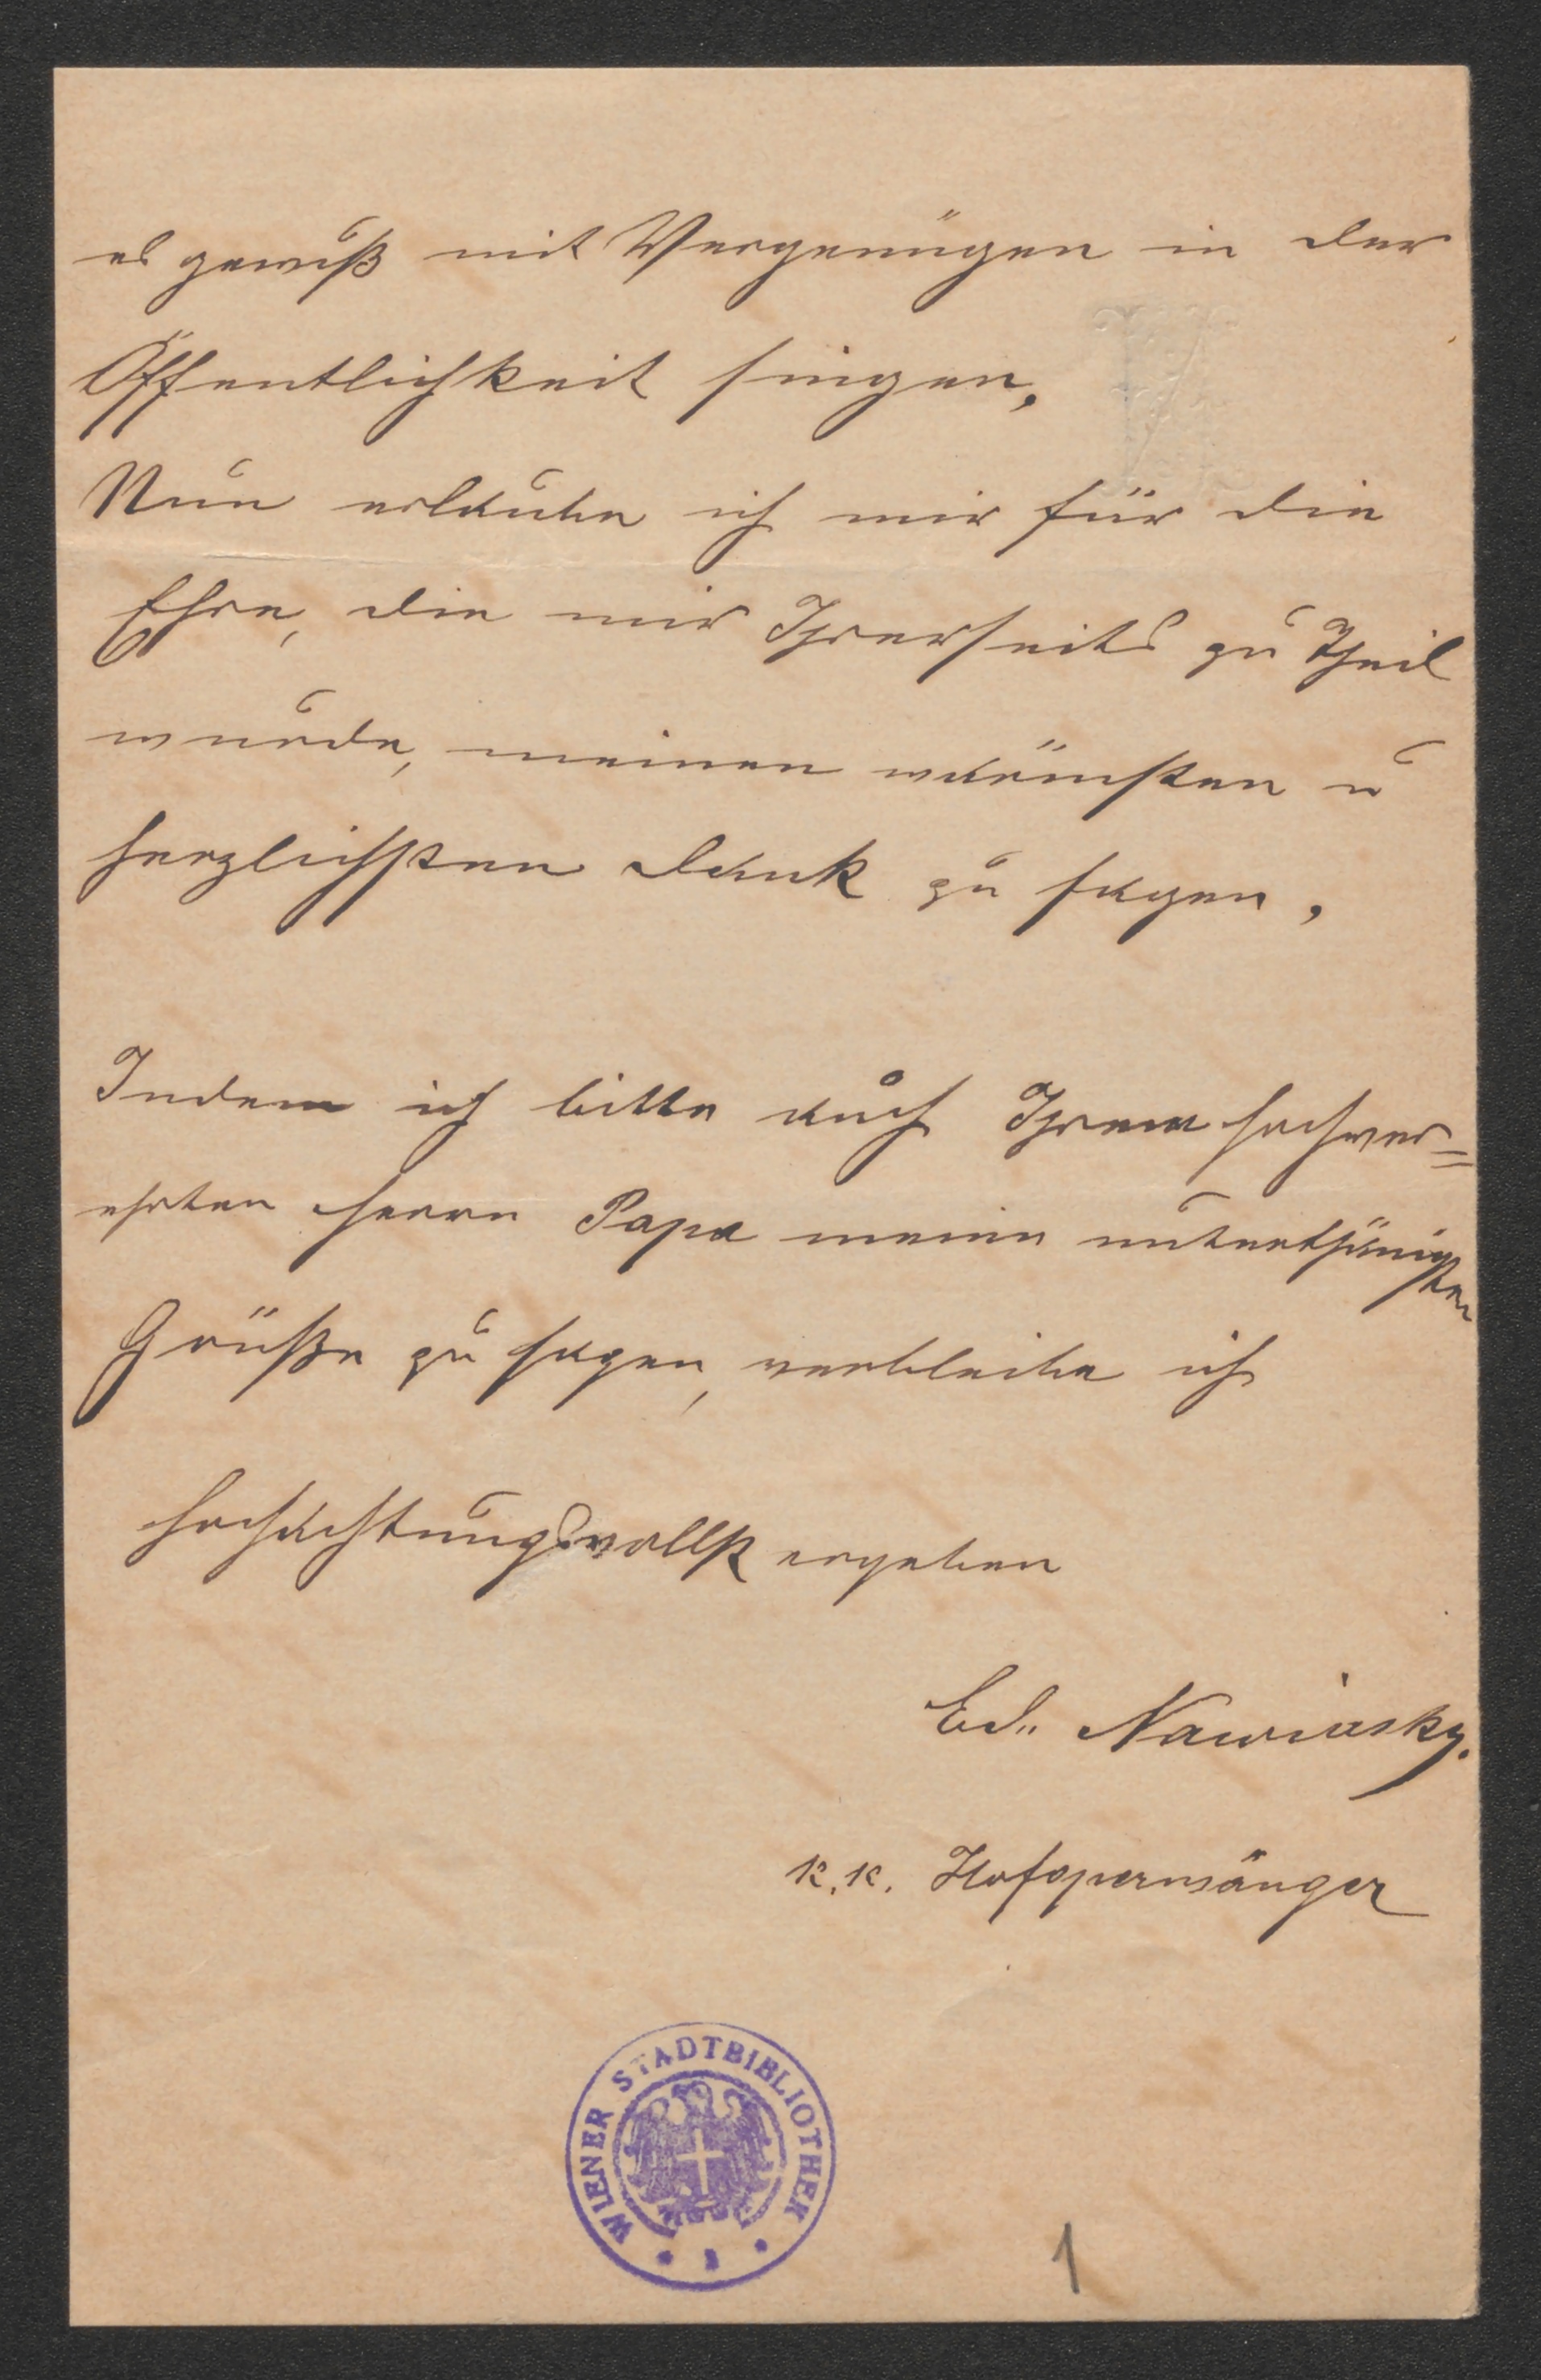 es gewiß mit Vergenügen in der
Öffentlichkeit singen.
Nun erlaube ich mir für die
Ehre, die mir Ihrerseits zu Theil
wurde, meinen wärmsten u
herzlichsten Dank zu sagen.
Indem ich bitte auch Ihrem hochver=
ehrten Herrn Papa meine unterthänigsten
Grüße zu sagen, verbleibe ich
hochachtungsvollst ergeben
Ed. Nawiasky.
k. k. Hofopernsänger
WIENER STADTBIBLIOTHEK
1